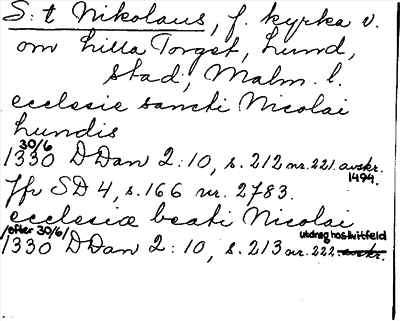 S:t Nikolaus, f. kyrka v.
om Lilla Torget, Lund,
stad, Malm. l.
ecclesie sancti Nicolai
Lundis
30/6
1330 DDan 2:10, s. 212 nr. 221. avskr. 1494.
Jfr SD 4, s. 166 nr. 2783.
ecclesiæ beati Nicolai
(efter 30/6)
1330 DDan 2:10, s. 213 nr. 222. utdrag hos Hvitfeld avskr.